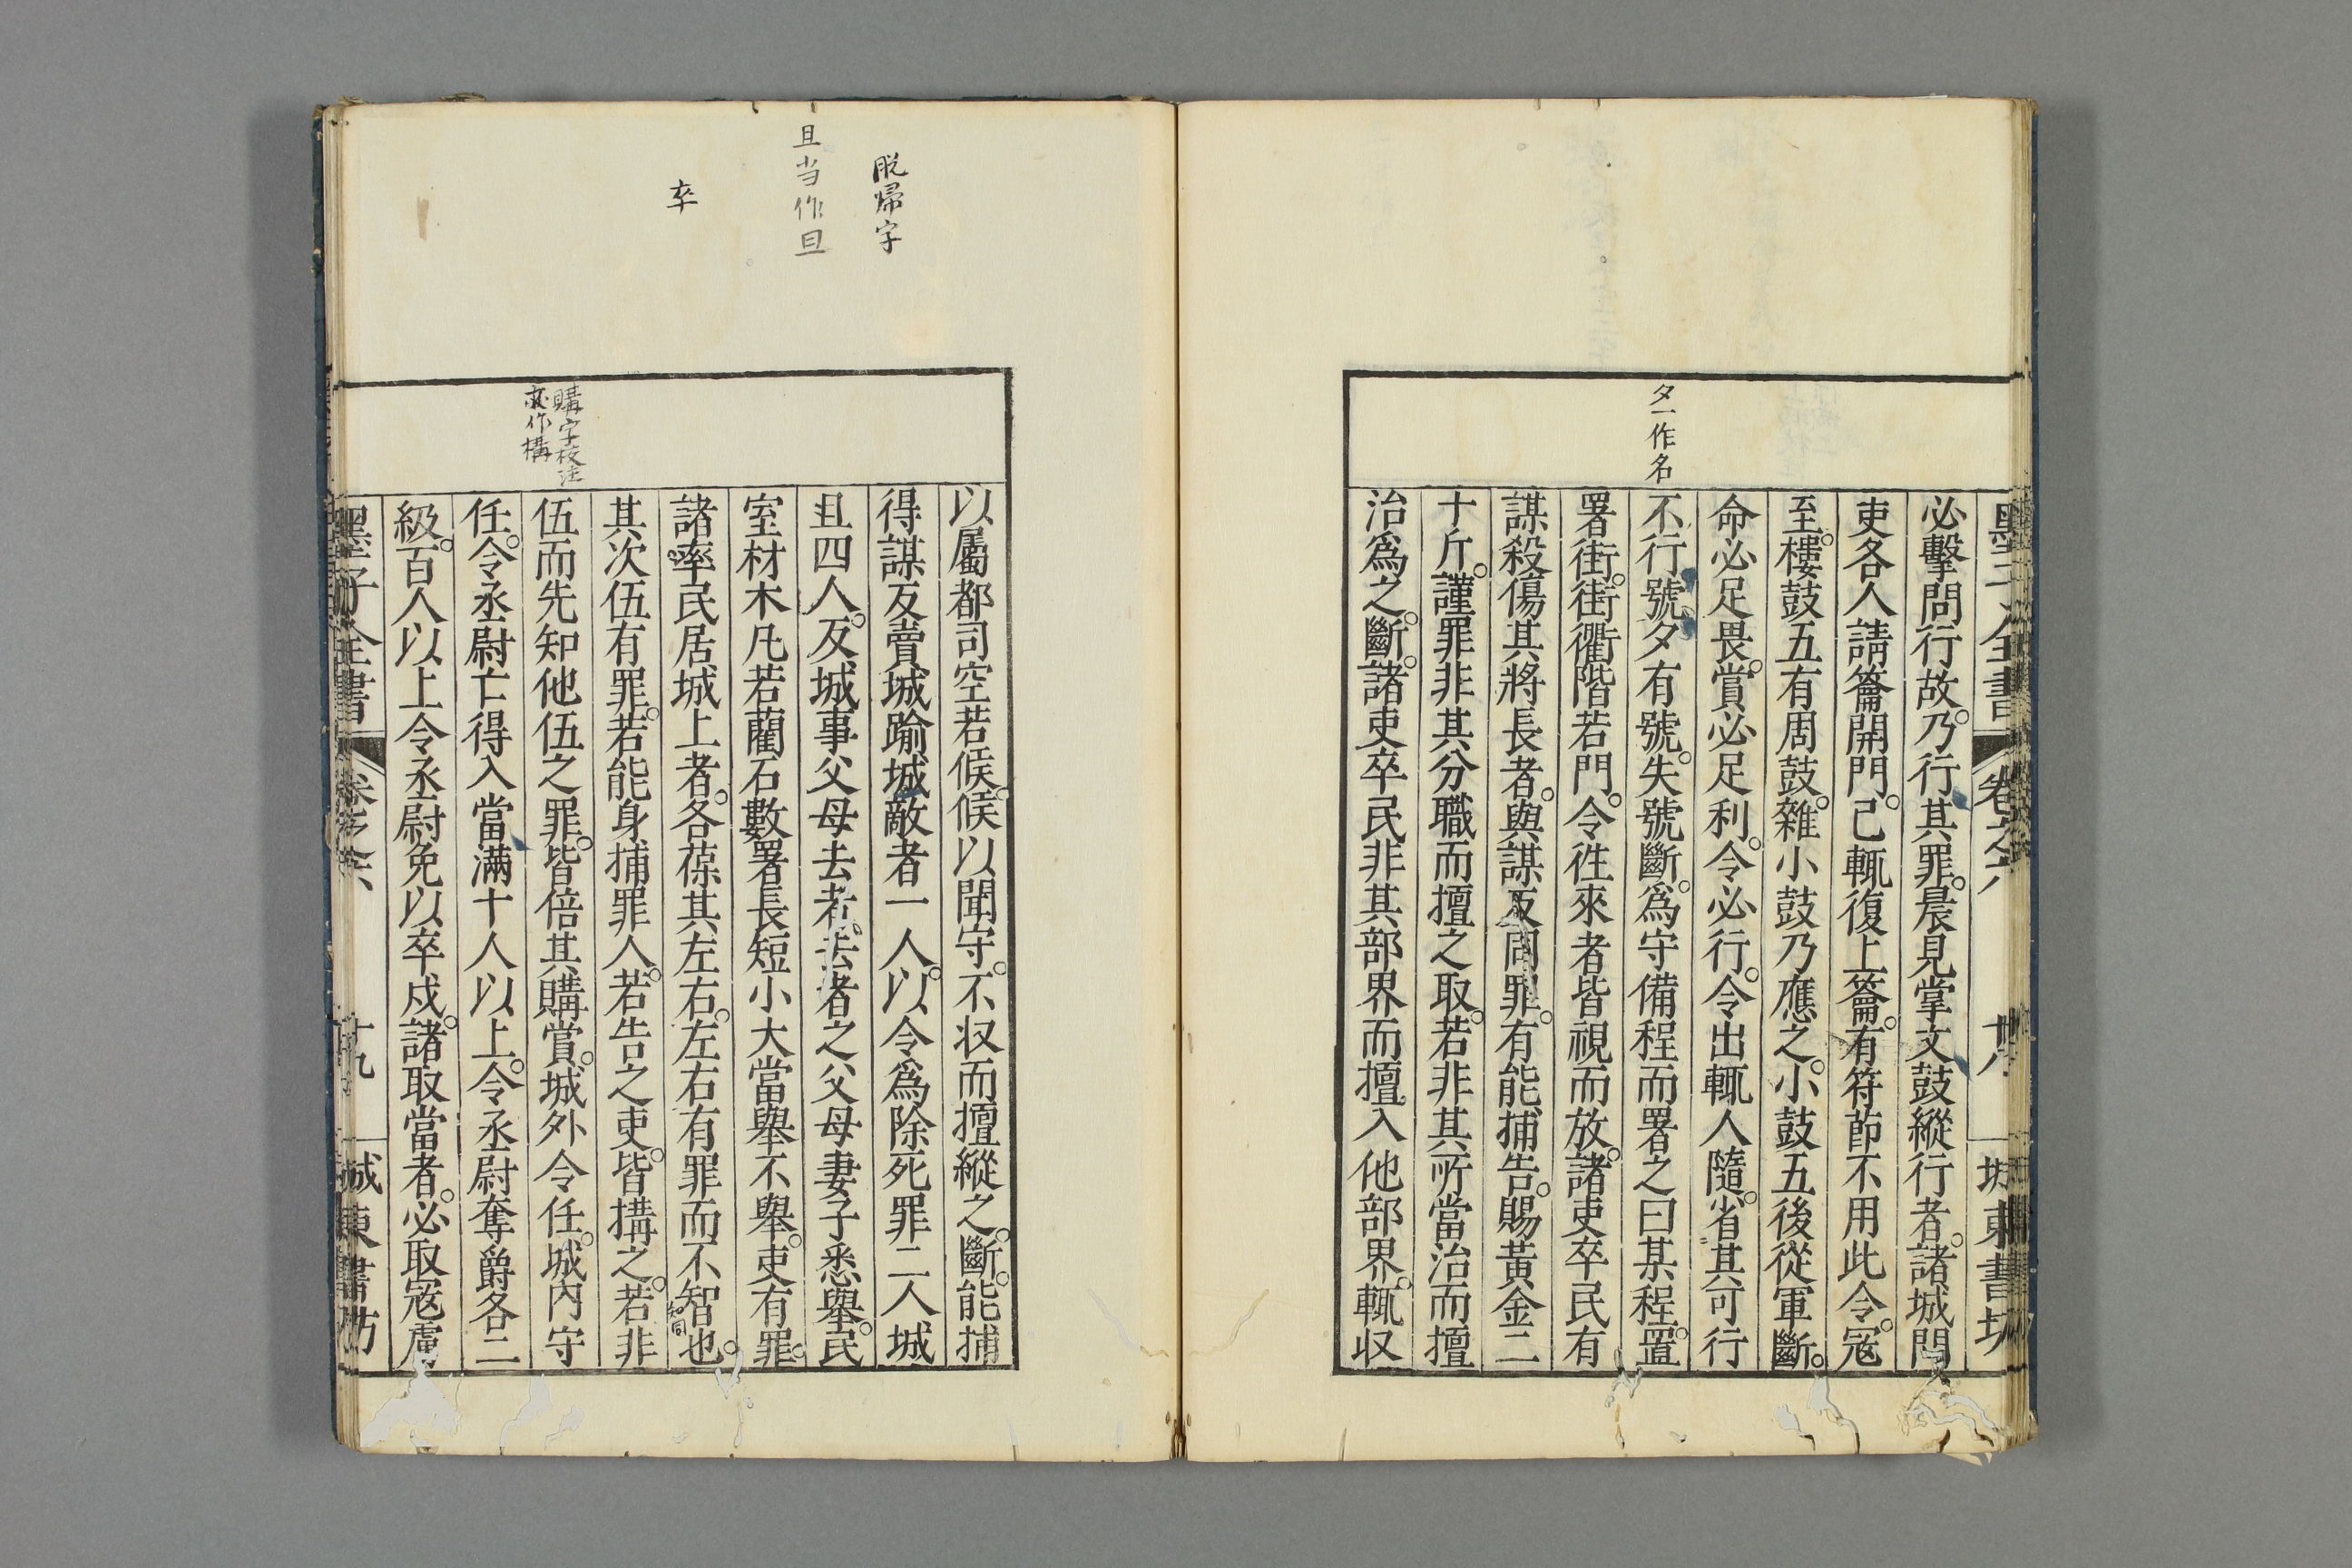 必擊問行故。乃行其罪。晨見掌文鼓縱行者。諸城門
吏各入請籥開門。已輒復上籥。有符節不用此令。寇
至。樓鼓五有周鼓。雜小鼓乃應之。小鼓五後從軍斷。
命必足畏。賞必足利。令必行。令出輒人隨。省其可行
不行號夕有號。失號斷。為守備程而署之曰某程。置
署街。街衢階若門。令徃來者皆視而放。諸吏卒民有
謀殺傷其將長者。與謀反同罪。有能捕告。賜黃金二
十斤。謹罪非其分職而擅之取。若非其所當治而擅
治爲之。斷。諸吏卒民非其部界而擅入他部界。輒収
夕一作名
以屬都司空若候。候以聞守。不収而擅縱之。斷。能捕
得謀反賣城踰城敵者一人。以令爲除死罪二人城
且四人。反城事父母去者。去者之父母妻子悉舉。民
室材木凡若藺石數署長短小大當舉不舉。吏有罪。
諸率民居城上者。各葆其左右。左右有罪而不智也。
其次伍有罪。若能身捕罪人。若告之吏。皆搆之。若非
伍而先知他伍之罪。皆倍其購賞。城外令任。城內守
任。令丞尉亡得入當滿十人以上。令丞尉奪爵各二
級。百人以上令丞尉免以卒戍。諸取當者。必取寇虜
墨子全書
卷之六
十九
城東書坊
脫歸字
且当作旦
卒
購字校注
亦作構